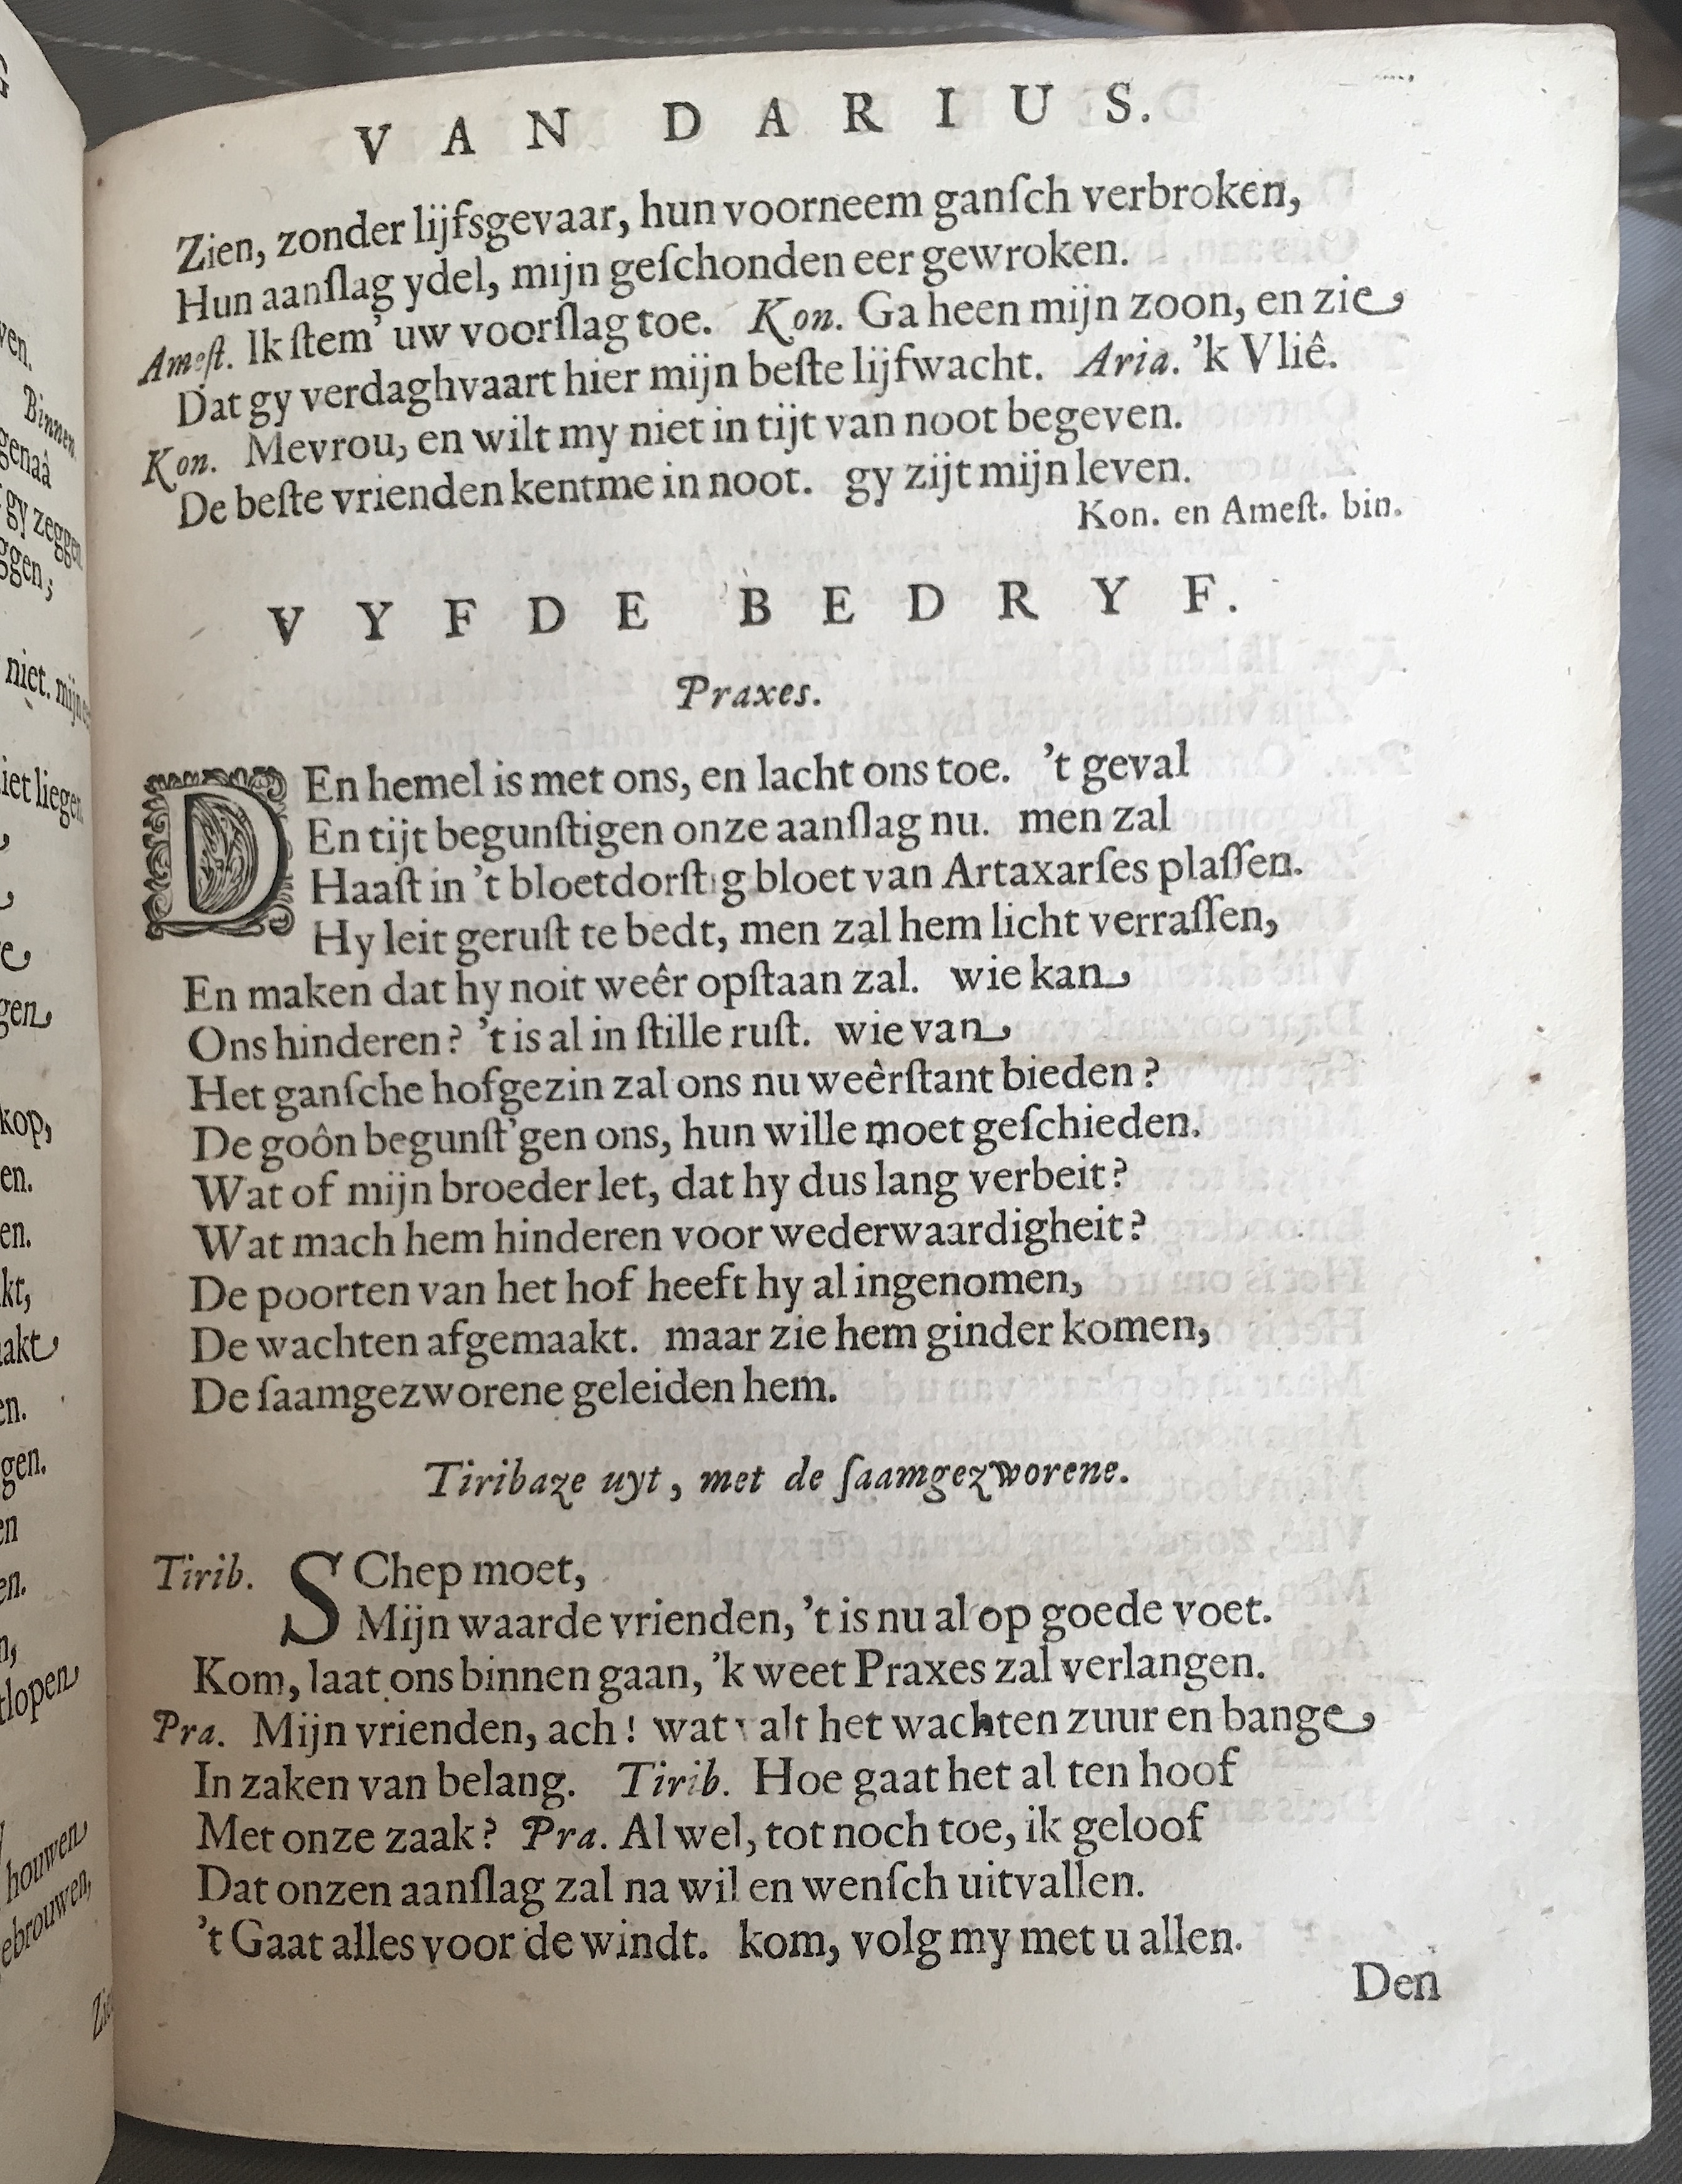 VAN DARIUS.
Zien, zonder lijfsgevaar, hun voorneem ganſch verbroken,
Hun aanſlag ydel, mijn geſchonden eer gewroken.
Ameſt. Ik ſtem' uw voorſlag toe. Kon. Ga heen mijn zoon, en zie
Dat gy verdaghvaart hier mijn beſte lijfwacht. Aria. 'k Vliê.
Kon. Mevrou, en wilt my niet in tijt van noot begeven.
De beſte vrienden kentme in noot. gy zijt mijn leven.
Kon. en Ameſt. bin.
VYFDE BEDRYF.
Praxes.
DEn hemel is met ons, en lacht ons toe. 't geval
En tijt begunſtigen onze aanſlag nu. men zal
Haaſt in 't bloetdorſtig bloet van Artaxarſes plaſſen.
Hy leit geruſt te bedt, men zal hem licht verraſſen,
En maken dat hy noit weêr opſtaan zal. wie kan
Ons hinderen? 't is al in ſtille ruſt. wie van
Het ganſche hofgezin zal ons nu weêrſtant bieden?
De goôn begunſt'gen ons, hun wille moet geſchieden.
Wat of mijn broeder let, dat hy dus lang verbeit?
Wat mach hem hinderen voor wederwaardigheit?
De poorten van het hof heeft hy al ingenomen,
De wachten afgemaakt. maar zie hem ginder komen,
De ſaamgezworene geleiden hem.
Tiribaze uyt, met de ſaamgezworene.
Tirib. SChep moet,
Mijn waarde vrienden, 't is nu al op goede voet.
Kom, laat ons binnen gaan, 'k weet Praxes zal verlangen.
Pra. Mijn vrienden, ach! wat valt het wachten zuur en bange
In zaken van belang. Tirib. Hoe gaat het al ten hoof
Met onze zaak? Pra. Al wel, tot noch toe, ik geloof
Dat onzen aanſlag zal na wil en wenſch uitvallen.
't Gaat alles voor de windt. kom, volg my met u allen.
Den